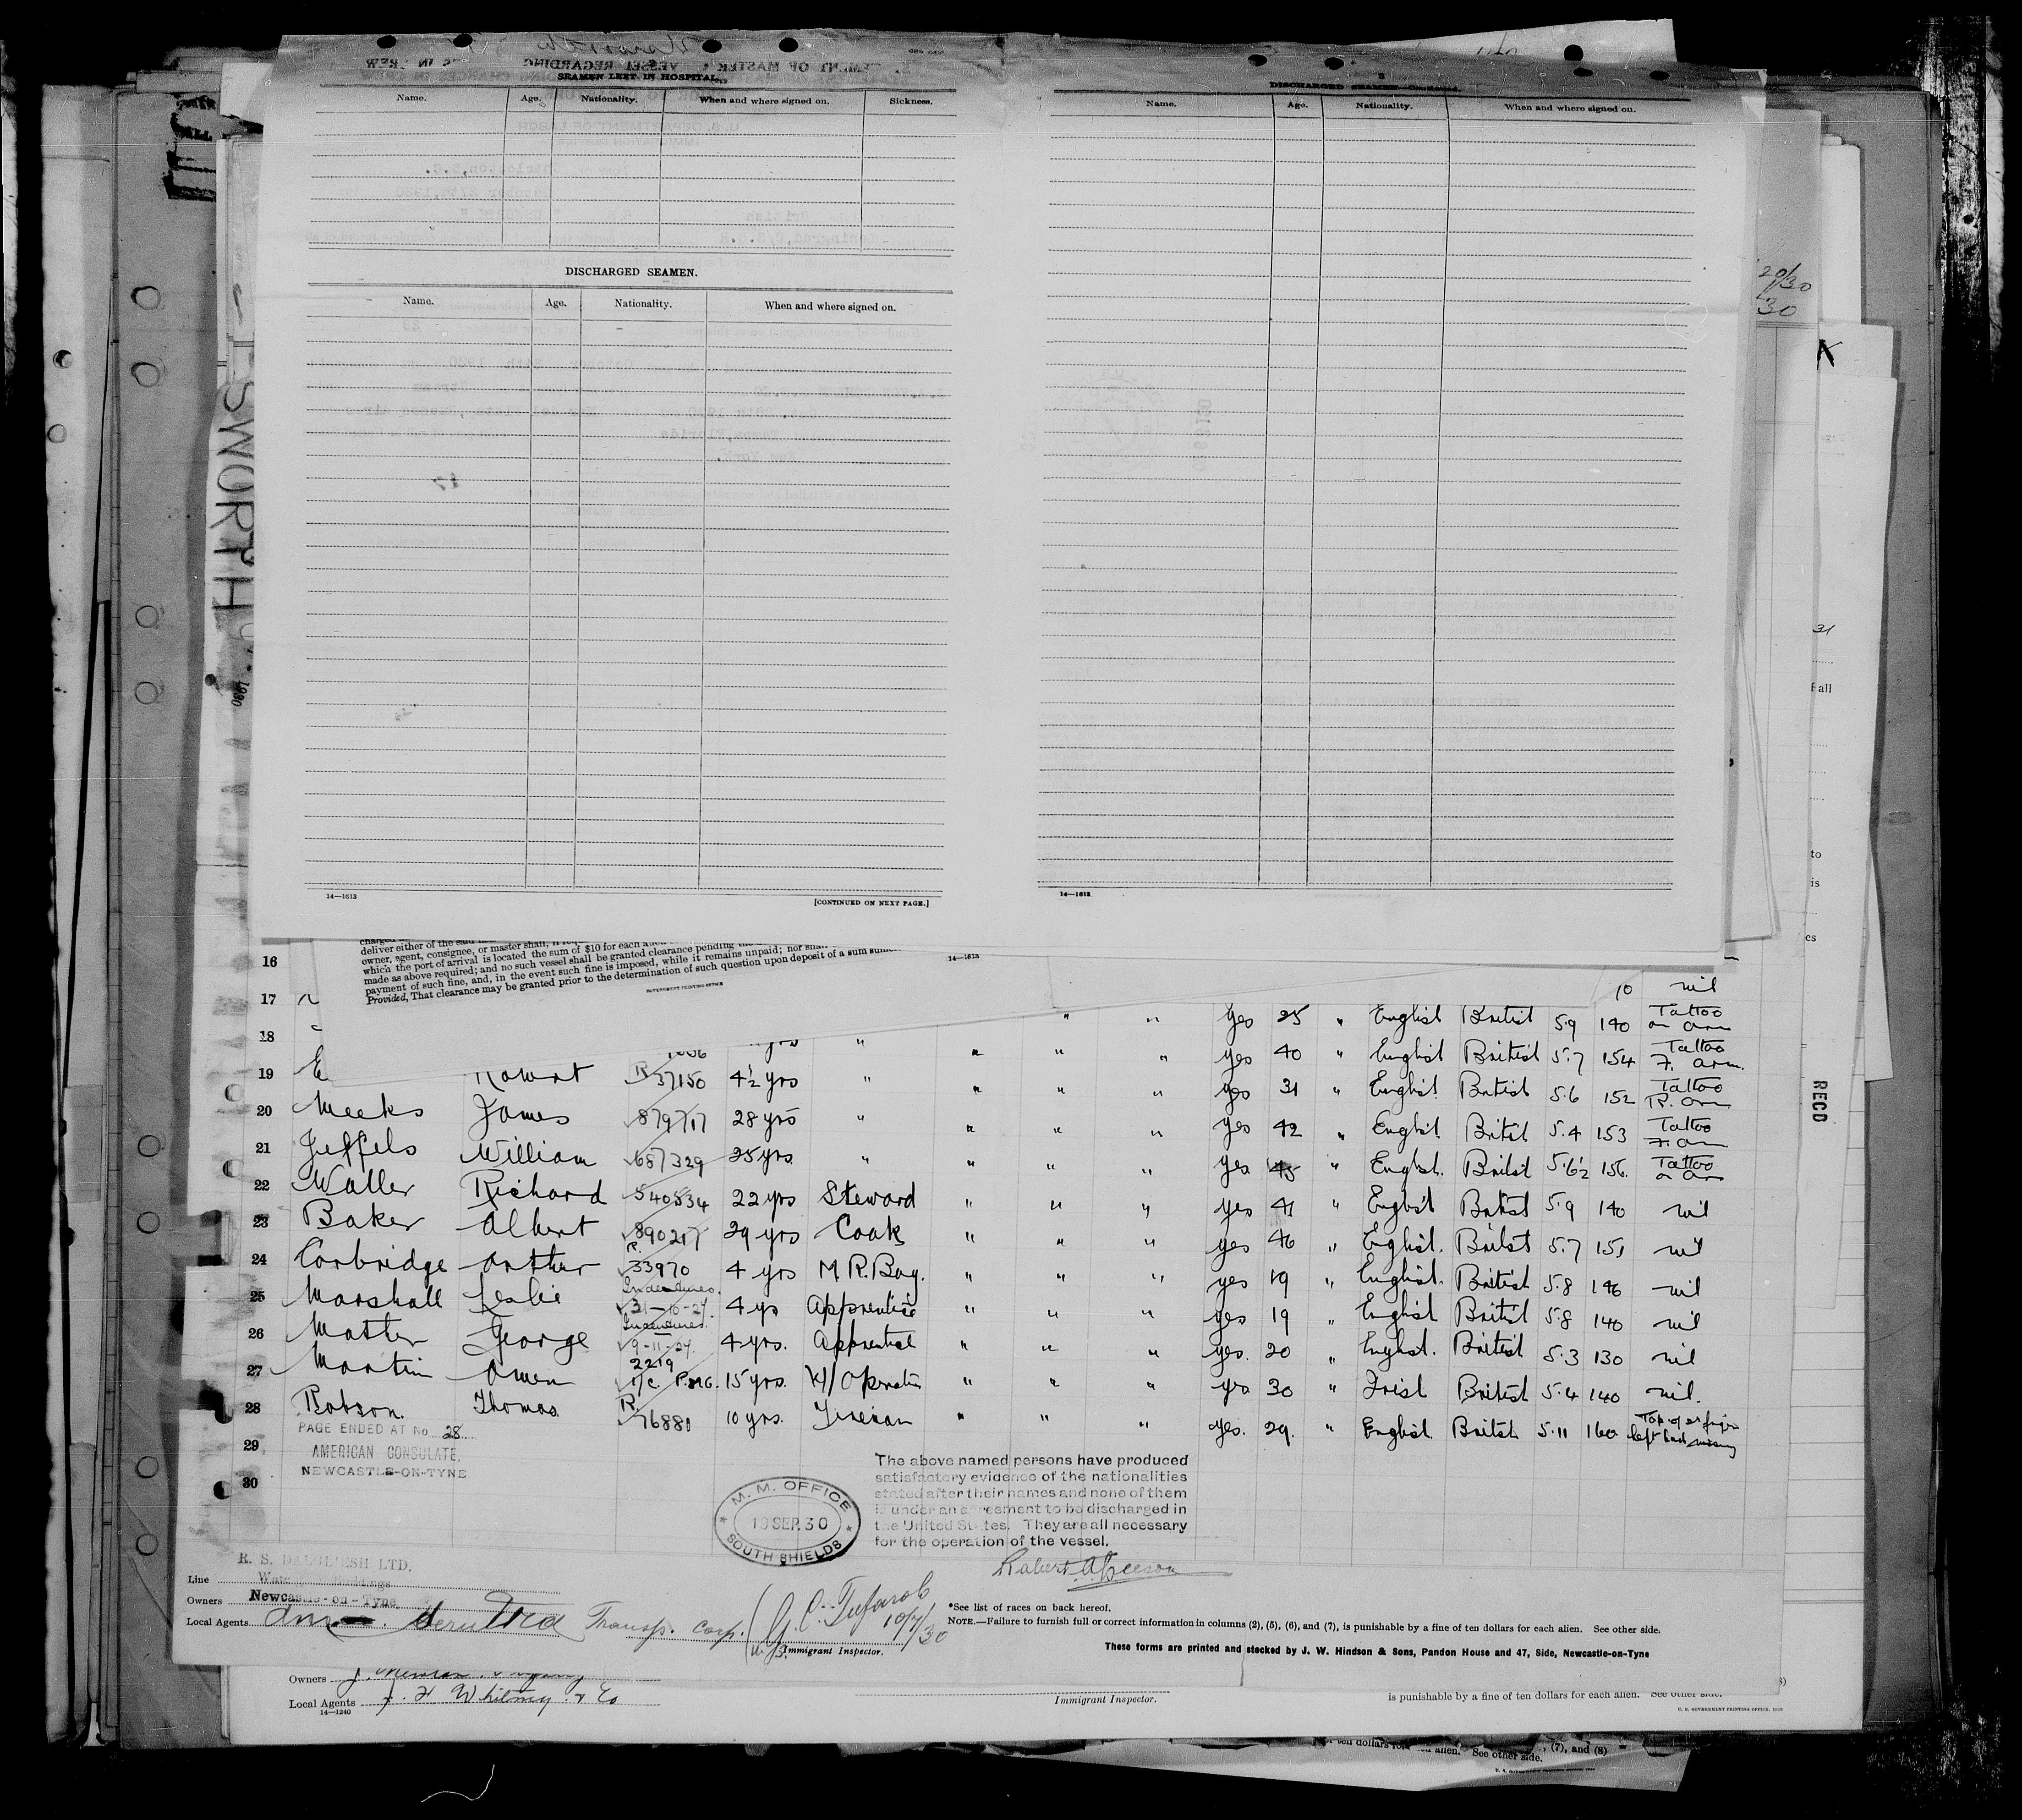 SEAMEN LEFT IN HOSPITAL.
Name. Age. Nationality. When and where signed on. Sickness.
DISCHARGED SEAMEN.
Name. Age. Nationality. When and where signed on.
14—1613 [CONTINUED ON NEXT PAGE.]
3
DISCHARGED SEAMEN—Continued.
Name. Age. Nationality. When and where signed on.
14—1613
20/30
30
31
SWORTH
1930
RECD
deliver either of the said
owner, agent, consignee, or master shall,
which the port of arrival is located the sum of $10 for each
made as above required; and no such vessel shall be granted clearance pending
payment of such fine, and, in the event such fine is imposed, while it remains unpaid; nor shall
Provided, That clearance may be granted prior to the determination of such question upon deposit of a sum
GOVERNMENT PRINTING OFFICE
14—1613
16
17 10 nil
18 " " yes 25 " English British 5.9 140 Tattoo on arm
" " " " yes 40 " English British 5.7 154 Tattoo F. arm.
19 Robert R 37150 4½ yrs " " " " yes 31 " English British 5.6 152 Tattoo R. arm
20 Meeks James 879717 28 yrs " " " " yes 42 " English British 5.4 153 Tattoo F. arm
21 Jeffels William 687329 25 yrs. " " " " yes 45 " English. British 5.6½ 156. Tattoo on arm
22 Waller Richard 540534 22 yrs Steward " " " yes 41 " English British 5.9 140 nil
23 Baker Albert 890217 29 yrs Cook " " " yes 46 " English. British 5.7 151 nil
24 Corbridge Arthur R. 33970 4 yrs M. R. Boy. " " " yes 19 " English. British 5.8 146 nil
25 Marshall Leslie Indentures. 31-10-27. 4 yrs Apprentice " " " yes 19 " English British 5.8 140 nil
26 Mather George Indentures. 9-11-27. 4 yrs. Apprentice " " " yes. 20 " English. British 5.3 130 nil
27 Martin Owen 2219 1/c. P.M.G. 15 yrs. W/Operator " " " yes 30 " Irish British 5.4 140 nil.
28 Robson. Thomas R. 76881 10 yrs. Fireman " " " yes. 29. " English British 5.11 160 Top of finger left hand missing
29 PAGE ENDED AT No. 28
AMERICAN CONSULATE,
NEWCASTLE-ON-TYNE
30
M. M. OFFICE
19 SEP. 30
SOUTH SHIELDS
The above named persons have produced
satisfactory evidence of the nationalities
stated after their names and none of them
is under an agreement to be discharged in
the United States. They are all necessary
for the operation of the vessel.
R. S. DALGLIESH LTD.
Line
Owners Newcastle-on-Tyne.
Local Agents Transp. Corp.
10/7/30
Immigrant Inspector.
*See list of races on back hereof.
NOTE.—Failure to furnish full or correct information in columns (2), (5), (6), and (7), is punishable by a fine of ten dollars for each alien. See other side.
These forms are printed and stocked by J. W. Hindson & Sons, Pandon House and 47, Side, Newcastle-on-Tyne
Owners
Local Agents J. H. Whitney & Co
14—1240
Immigrant Inspector.
is punishable by a fine of ten dollars for each alien. See other side.
U. S. GOVERNMENT PRINTING OFFICE
ten dollars for alien. See other side. (7), and (8)